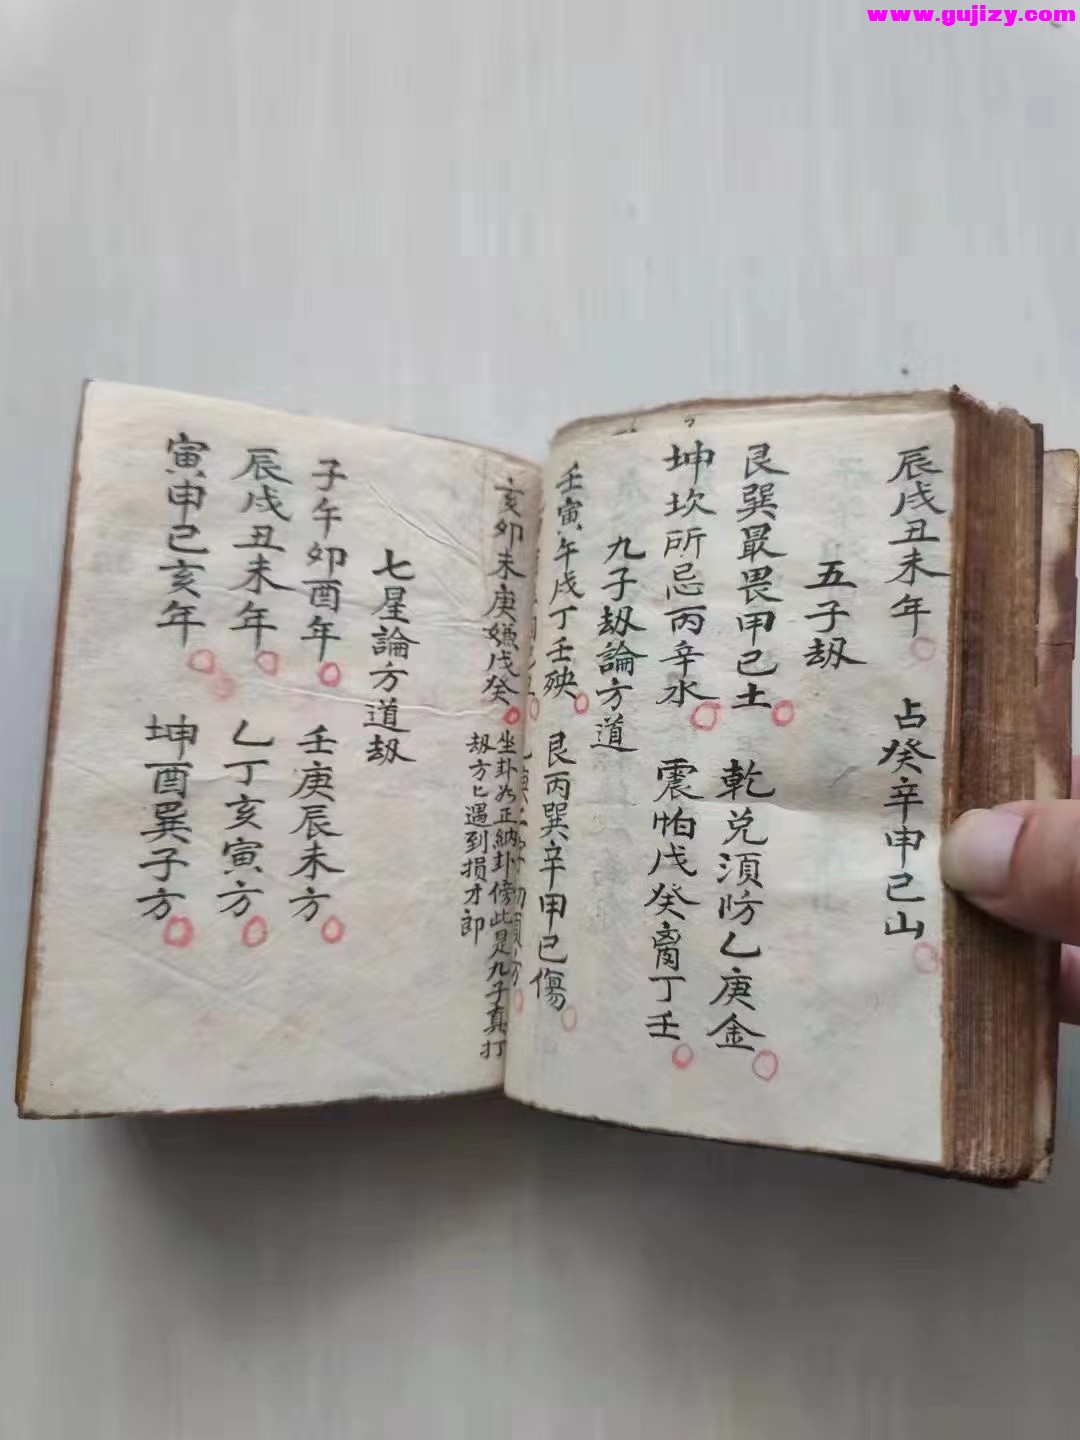 www.gujizy.com
辰戌丑未年 占癸辛申巳山
五子刼
艮巽最畏甲己土 乾兌須防乙庚金
坤坎所忌丙辛水 震怕戊癸离丁壬
九子刼論方道
壬寅午戌丁壬殃 艮丙巽辛甲己傷
亥卯未庚嫌戊癸
坐卦为正納卦傍此是九子真打
刼方匕遇到損才郎
七星論方道刼
子午卯酉年 壬庚辰未方
辰戌丑未年 乙丁亥寅方
寅申巳亥年 坤酉巽子方